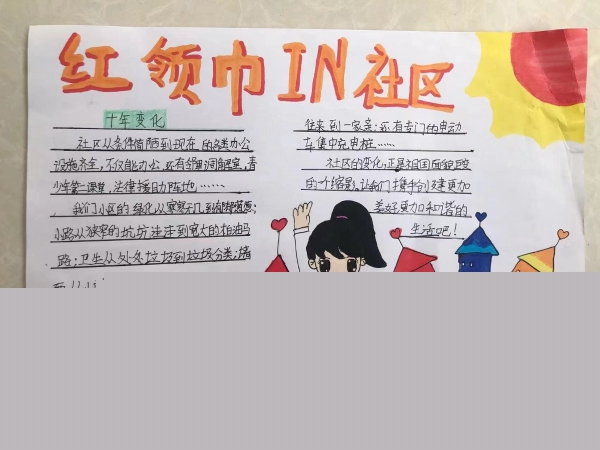 红领巾IN社区
十年变化
社区从条件简陋到现在的各类办公
设施齐全,不仅能办公,还有邻里调解室,青
少年第一课堂,法律援助阵地……
我们小区的绿化从寥寥无几,到
小路从狭窄的坑坑洼洼到宽大的柏油马
路;卫生从处处垃圾到垃圾分类;
往来到一家亲;还有专门的电动
车集中充电桩……
社区的变化,正是祖国面貌巨变
的一个缩影,让我们携手创建更加
美好更加和谐的
生活吧!